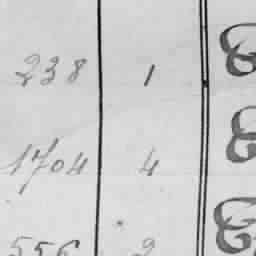 238 1
1704 4
556 2